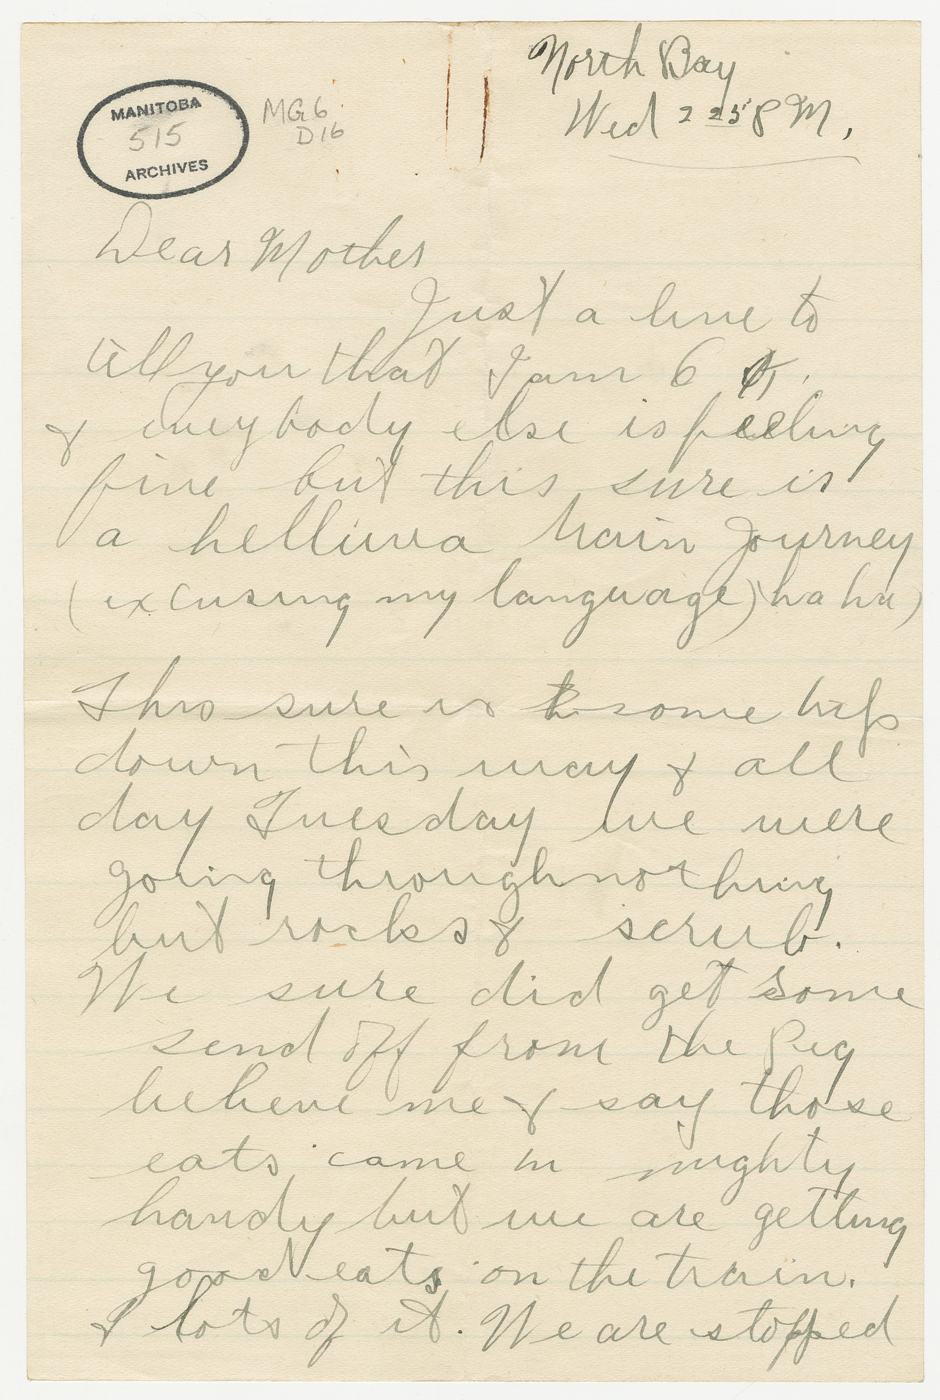 North Bay
Wed 2 25 P M.
MANITOBA
515
ARCHIVES
MG6
D16
Dear Mother
Just a line to
tell you that I am
& everybody else is feeling
fine but this sure is
a helluva train journey
(excusing my language) ha ha)
This sure is some trip
down this way & all
day Tuesday we were
going through nothing
but rocks & scrub.
We sure did get some
send off from the Peg
believe me & say those
eats came in mighty
handy but we are getting
good eats on the train.
& lots of it. We are stopped